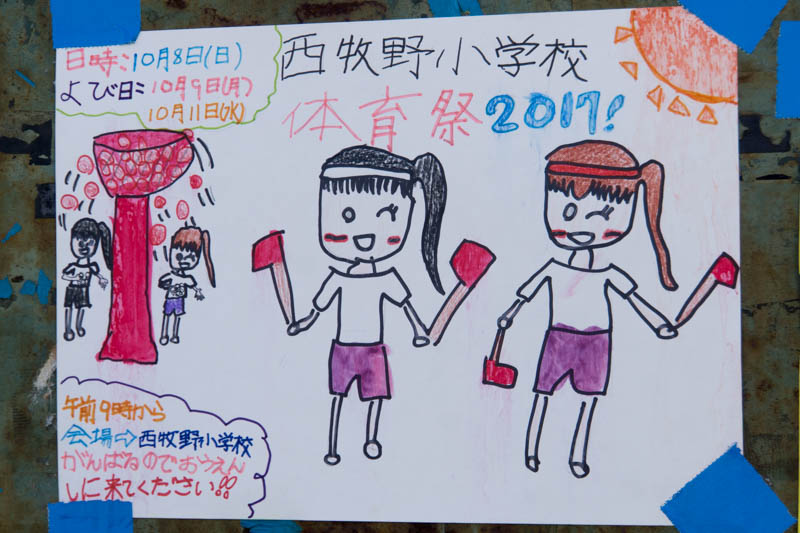 日時:10月8日(日)
よび日:10月9日(月)
10月11日(水)
西牧野小学校
体育祭2017!
午前9時から
会場⇨西牧野小学校
がんばるのでおうえん
しに来てください!!